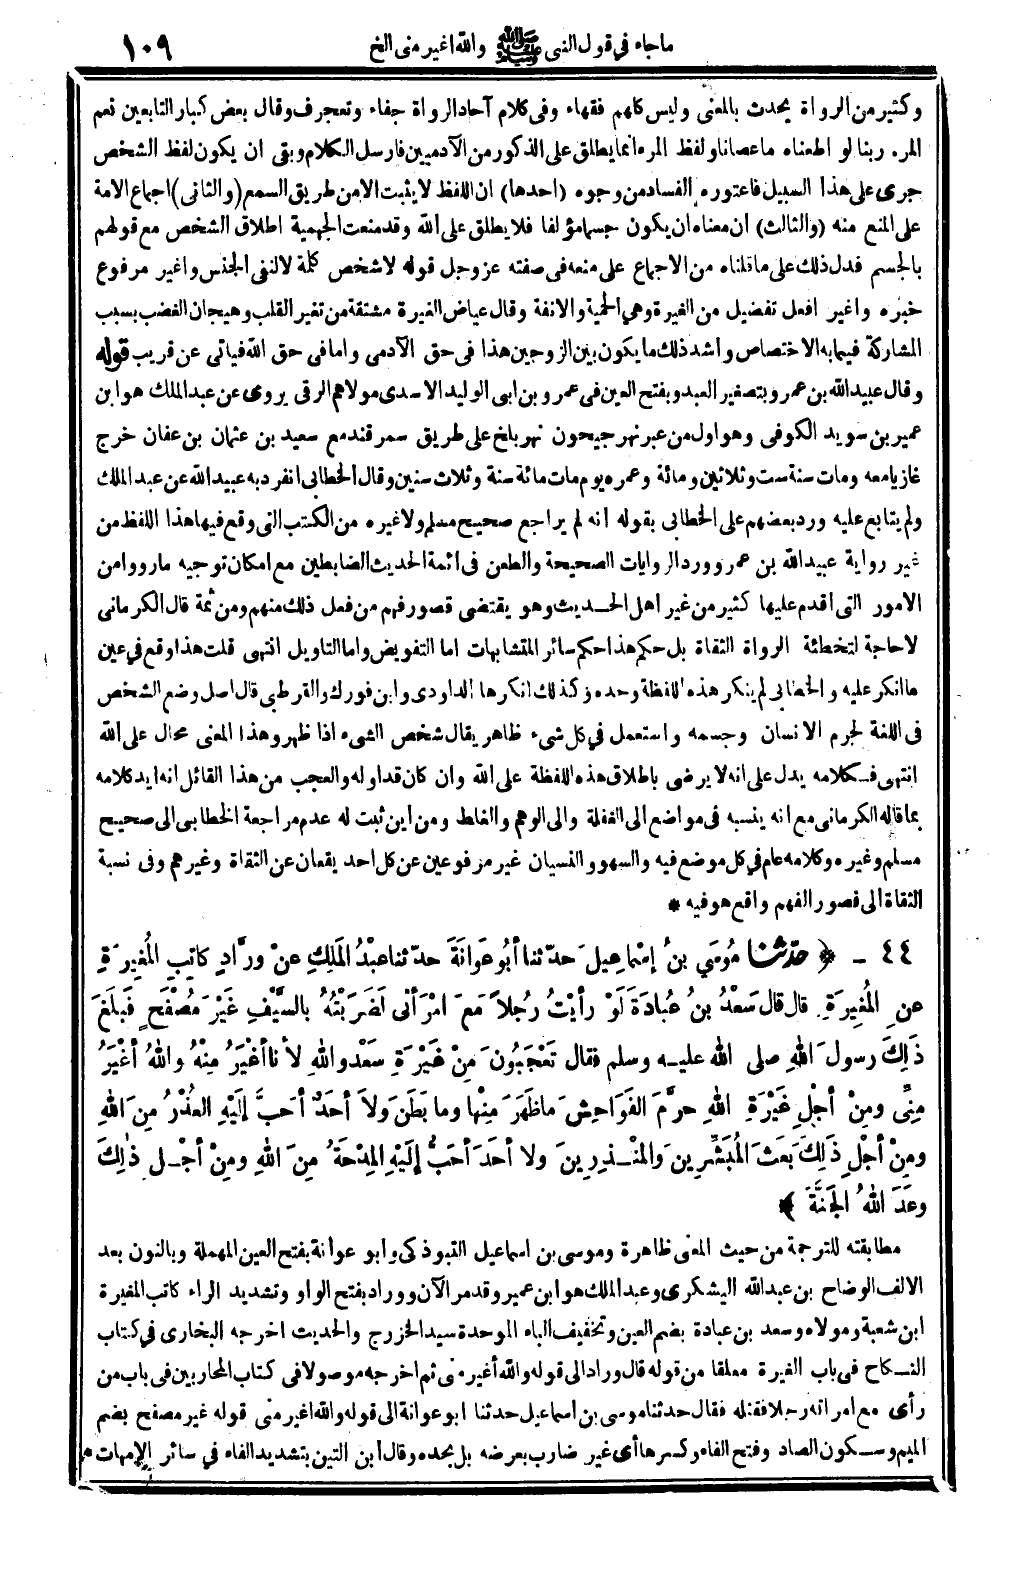 ماجاء في قول النبى ﷺ والله اغير منى الخ ١٠٩
وكثير من الرواة يحدث بالمعنى وليس كلهم فقهاء وفى كلام آحاد الرواة جفاء وتعجرف وقال بعض كبار التابعين نعم
المرء ربنا لو اطعناه ما عصانا ولفظ المرء انما يطلق على الذكور من الآدميين فارسل الكلام وبقى ان يكون لفظ الشخص
جرى على هذا السبيل فاعتوره الفساد من وجوه (احدها) ان اللفظ لا يثبت الا من طريق السمع (والثانى) اجماع الامة
على المنع منه (والثالث) ان معناه ان يكون جسما مؤلفا فلا يطلق على الله وقد منعت الجهمية اطلاق الشخص مع قولهم
بالجسم فدل ذلك على ما قلناه من الاجماع على منعه فى صفته عز وجل قوله لا شخص كلمة لا لنفى الجنس واغير مرفوع
خبره واغير افعل تفضيل من الغيرة وهي الحمية والانفة وقال عياض الغيرة مشتقة من تغير القلب وهيجان الغضب بسبب
المشاركة فيما به الاختصاص واشد ذلك ما يكون بين الزوجين هذا فى حق الآدمى واما فى حق الله فياتى عن قريب قوله
وقال عبيد الله بن عمرو بتصغير العبد وبفتح العين فى عمرو بن ابى الوليد الاسدى مولاهم الرقى يروى عن عبد الملك هو ابن
عمير بن سويد الكوفى وهو اول من عبر نهر جيحون نهر بلخ على طريق سمرقند مع سعيد بن عثمان بن عفان خرج
غازيا معه ومات سنة ست وثلاثين ومائة وعمره يوم مات مائة سنة وثلاث سنين وقال الخطابى انفرد به عبيد الله عن عبد الملك
ولم يتابع عليه ورد بعضهم على الخطابى بقوله انه لم يراجع صحيح مسلم ولا غيره من الكتب التى وقع فيها هذا اللفظ من
غير رواية عبيد الله بن عمرو ورد الروايات الصحيحة والطعن فى ائمة الحديث الضابطين مع امكان توجيه ما رووا من
الامور التى اقدم عليها كثير من غير اهل الحديث وهو يقتضى قصور فهم من فعل ذلك منهم ومن ثمة قال الكرمانى
لا حاجة لتخطئة الرواة الثقاة بل حكم هذا حكم سائر المتشابهات اما التفويض واما التاويل انتهى قلت هذا وقع في عين
ما انكر عليه والخطابى لم ينكر هذه اللفظة وحده وكذلك انكرها الداودى وابن فورك والقرطبى قال اصل وضع الشخص
فى اللغة لجرم الانسان وجسمه واستعمل في كل شىء ظاهر يقال شخص الشىء اذا ظهر وهذا المعنى محال على الله
انتهى فكلامه يدل على انه لا يرضى باطلاق هذه اللفظة على الله وان كان قد اوله والعجب من هذا القائل انه ايد كلامه
بما قاله الكرمانى مع انه ينسبه فى مواضع الى الغفلة والى الوهم والغلط ومن اين ثبت له عدم مراجعة الخطابى الى صحيح
مسلم وغيره وكلامه عام في كل موضع فيه والسهو والنسيان غير مرفوعين عن كل احد يقعان عن الثقاة وغيرهم وفى نسبة
الثقاة الى قصور الفهم واقع هو فيه *
٤٤ - ﴿ حَدَّثَنَا مُوسَى بنُ إسْمَاعِيلَ حدّثنا أبُو عَوَانَةَ حدّثنا عبْدُ المَلِكِ عنْ ورَّادٍ كاتِبِ المُغِيرَةِ
عنِ المُغِيرَةِ قال قال سَعْدُ بنُ عُبادَةَ لَوْ رأيْتُ رجُلاً مَعَ امْرَأتى لَضَرَبْتُهُ بالسَّيْفِ غَيْرَ مُصْفَحٍ فَبلَغَ
ذٰلِكَ رسولَ اللهِ صلى الله عليه وسلم فقال تَعْجَبُونَ مِنْ غَيْرَةِ سَعْدٍ واللهِ لأنا أغْيَرُ مِنْهُ واللهُ أغْيَرُ
مِنِّى ومِنْ أجْلِ غَيْرَةِ اللهِ حرَّمَ الفَوَاحِشَ ماظَهَرَ مِنْها وما بَطَنَ ولا أحَدٌ أحَبَّ إلَيْهِ العُذْرُ مِنَ اللهِ
ومِنْ أجْلِ ذٰلِكَ بَعَثَ المُبَشِّرِينَ والمُنْذِرِينَ ولا أحَدَ أحَبُّ إلَيْهِ المِدْحَةُ مِنَ اللهِ ومِنْ أجْلِ ذٰلِكَ
وعَدَ اللهُ الجَنَّةَ ﴾
مطابقته للترجمة من حيث المعنى ظاهرة وموسى بن اسماعيل التبوذكى وابو عوانة بفتح العين المهملة وبالنون بعد
الالف الوضاح بن عبد الله اليشكرى وعبد الملك هو ابن عمير وقد مر الآن ووراد بفتح الواو وتشديد الراء كاتب المغيرة
ابن شعبة ومولاه وسعد بن عبادة بضم العين وتخفيف الباء الموحدة سيد الخزرج والحديث اخرجه البخارى في كتاب
النكاح فى باب الغيرة معلقا من قوله قال وراد الى قوله والله أغير منى ثم اخرجه موصولا فى كتاب المحاربين فى باب من
رأى مع امرأته رجلا فقتله فقال حدثنا موسى بن اسماعيل حدثنا ابو عوانة الى قوله والله اغير منى قوله غير مصفح بضم
الميم وسكون الصاد وفتح الفاء وكسرها أى غير ضارب بعرضه بل بحده وقال ابن التين بتشديد الفاء في سائر الامهات